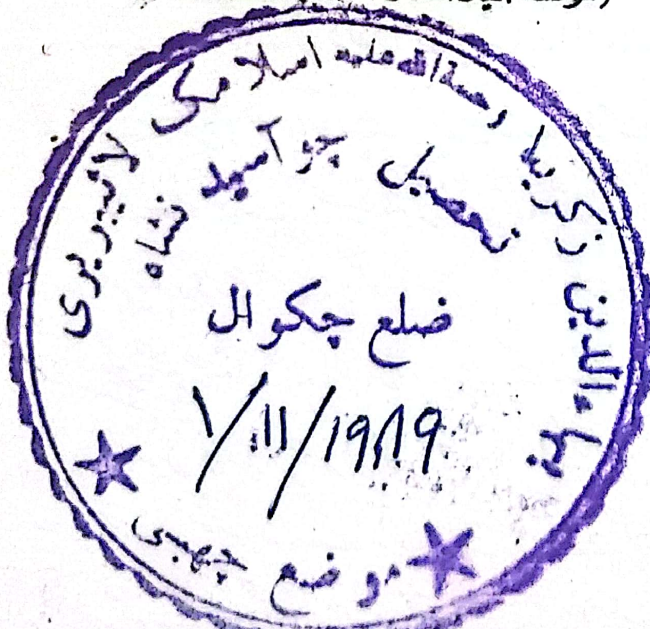 بہاءالدین زکریا رحمۃ اللہ علیہ اسلامک لائبریری
تحصیل چوآسیدنشاہ
ضلع چکوال
۱/۱۱/۱۹۸۹
موضع چھبی